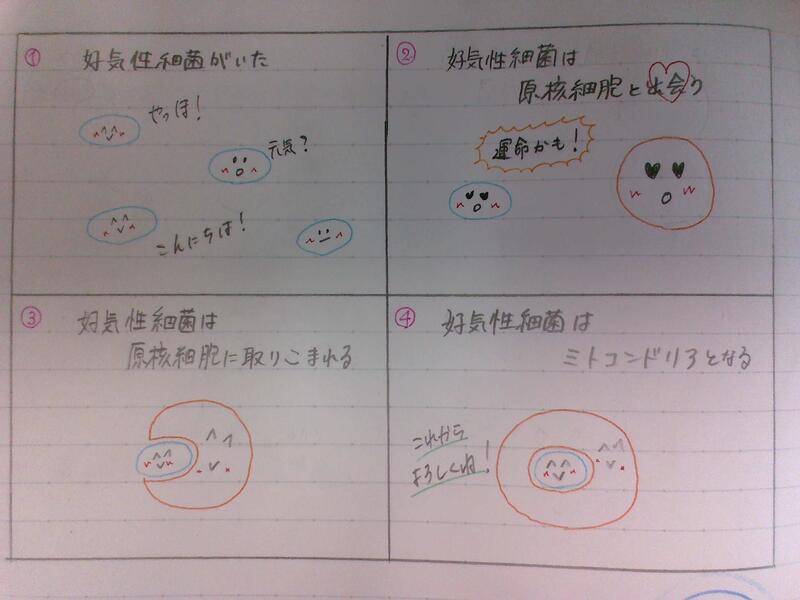 ① 好気性細菌がいた
やっほ!
元気?
こんにちは!
② 好気性細菌は
原核細胞と出会う
運命かも!
③ 好気性細菌は
原核細胞に取りこまれる
④ 好気性細菌は
ミトコンドリアとなる
これから
よろしくね!